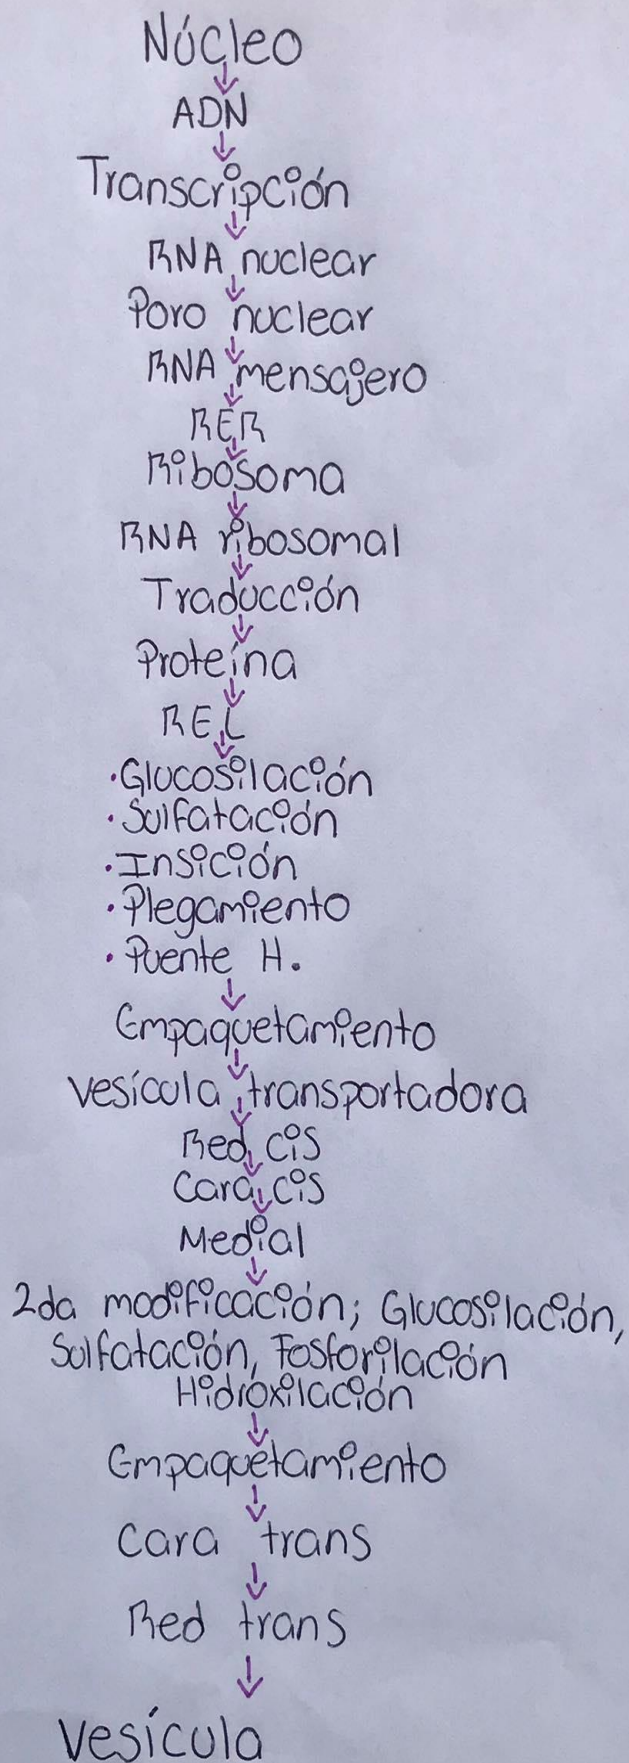 Núcleo
ADN
Transcripción
RNA nuclear
Poro nuclear
RNA mensajero
RER
Ribosoma
RNA ribosomal
Traducción
Proteína
REL
·Glucosilación
·Sulfatación
·Insición
·Plegamiento
·Puente H.
Empaquetamiento
Vesícula transportadora
Red cis
Cara cis
Medial
2da modificación; Glucosilación,
Sulfatación, Fosforilación
Hidroxilación
Empaquetamiento
Cara trans
Red trans
Vesícula